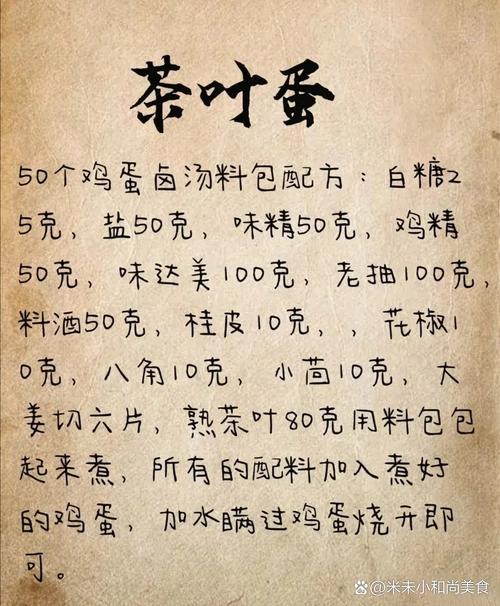 茶叶蛋
50个鸡蛋卤汤料包配方：白糖2
5克，盐50克，味精50克，鸡精
50克，味达美100克，老抽100克，
料酒50克，桂皮10克，，花椒1
0克，八角10克，小茴10克，大
姜切六片，熟茶叶80克用料包包
起来煮，所有的配料加入煮好
的鸡蛋，加水瞒过鸡蛋烧开即
可。
@米未小和尚美食